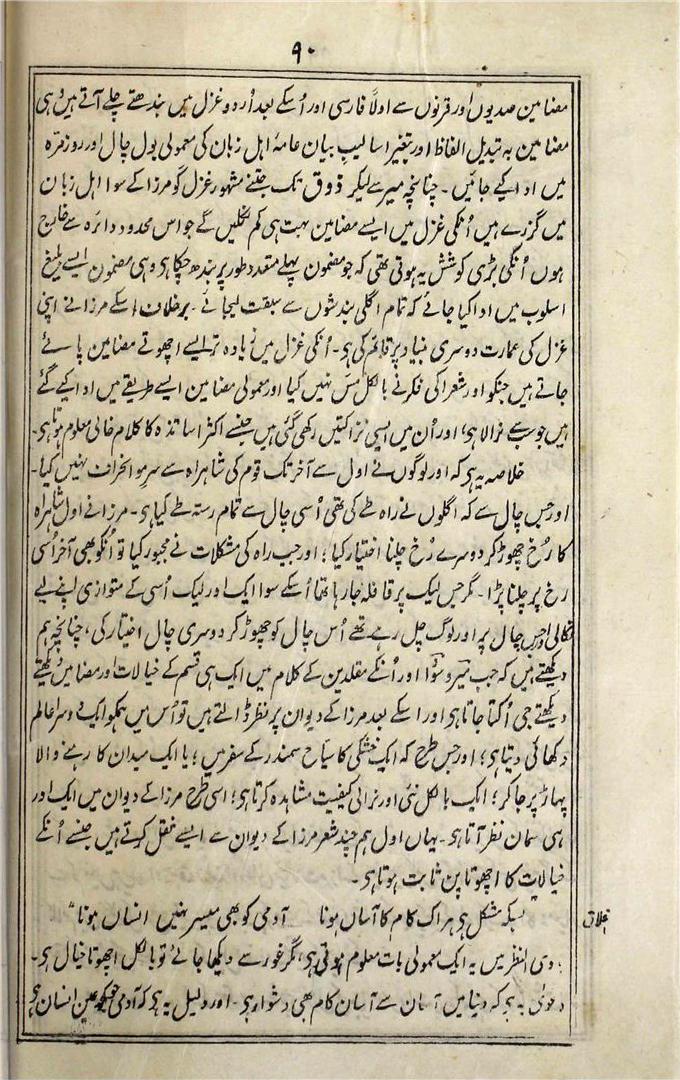 ۹۰
مضامین صدیوں اور قرنوں سے اولاً فارسی اور اُسکے بعد اُردو غزل میں بندھتے چلے آتے ہیں وُہی
مضامین بہ تبدیل الفاظ اور بتغیر اسالیب بیان عامۂ اہل زبان کی معمولی بول چال اور روزمرہ
میں ادا کیے جائیں۔ چنانچہ میر سے لیکر ذوق تک جتنے مشہور غزل گو مرزا کے سوا اہل زبان
میں گزرے ہیں اُنکی غزل میں ایسے مضامین بہت ہی کم نکلیں گے جو اس محدود دائرہ سے خارج
ہوں اُنکی بڑی کوشش یہ ہوتی تھی کہ جو مضمون پہلے متعدد طور پر بندھ چکا ہو وہی مضمون ایسے بلیغ
اسلوب میں ادا کیا جائے کہ تمام اگلی بندشوں سے سبقت لیجائے۔ برخلاف اسکے مرزا نے اپنی
غزل کی عمارت دوسری بنیاد پر قائم کی ہے۔ اُنکی غزل میں زیادہ تر ایسے اچھوتے مضامین پائے
جاتے ہیں جنکو اور شعرا کی فکر نے بالکل مَس نہیں کیا اور معمولی مضامین ایسے طریقے میں ادا کیے گئے
ہیں جو سب سے نرالا ہو؛ اور اُن میں ایسی نزاکتیں رکھی گئی ہیں جنسے اکثر اساتذہ کا کلام خالی معلوم ہوتا ہے۔
خلاصہ یہ ہے کہ اور لوگوں نے اول سے آخر تک قوم کی شاہراہ سے سرِ مو انحراف نہیں کیا۔
اور جس چال سے کہ اگلوں نے راہ طے کی تھی اُسی چال سے تمام رستہ طے کیا ہے۔ مرزا نے اول شاہراہ
کا رُخ چھوڑ کر دوسرے رُخ چلنا اختیار کیا؛ اور جب راہ کی مشکلات نے مجبور کیا تو انکو بھی آخر اُسی
رخ پر چلنا پڑا۔ مگر جس لیک پر قافلہ جا رہا تھا اُسکے سوا ایک اور لیک اُسی کے متوازی اپنے لیے
نکالی اور جس چال پر اور لوگ چل رہے تھے اُس چال کو چھوڑ کر دوسری چال اختیار کی، چنانچہ ہم
دیکھتے ہیں کہ جب میر و سودا اور اُنکے مقلدین کے کلام میں ایک ہی قسم کے خیالات اور مضامین دیکھتے
دیکھتے جی اُکتا جاتا ہے اور اسکے بعد مرزا کے دیوان پر نظر ڈالتے ہیں تو اُس میں ہمکو ایک دوسرا عالم
دکھائی دیتا ہے؛ اور جس طرح کہ ایک خشکی کا سیاح سمندر کے سفر میں؛ یا ایک میدان کا رہنے والا
پہاڑ پر جا کر؛ ایک بالکل نئی اور نرالی کیفیت مشاہدہ کرتا ہے؛ اسی طرح مرزا کے دیوان میں ایک اور
ہی سمان نظر آتا ہے۔ یہاں اول ہم چند شعر مرزا کے دیوان سے ایسے نقل کرتے ہیں جنسے اُنکے
خیالات کا اچھوتا پن ثابت ہوتا ہے۔
اخلاق
بسکہ مشکل ہے ہر اک کام کا آساں ہونا آدمی کو بھی میسر نہیں انساں ہونا
بادی النظر میں یہ ایک معمولی بات معلوم ہوتی ہے، مگر غور سے دیکھا جائے تو بالکل اچھوتا خیال ہے۔
دعویٰ یہ ہے کہ دنیا میں آسان سے آسان کام بھی دشوار ہے۔ اور دلیل یہ ہے کہ آدمی جو کہ عین انسان ہے